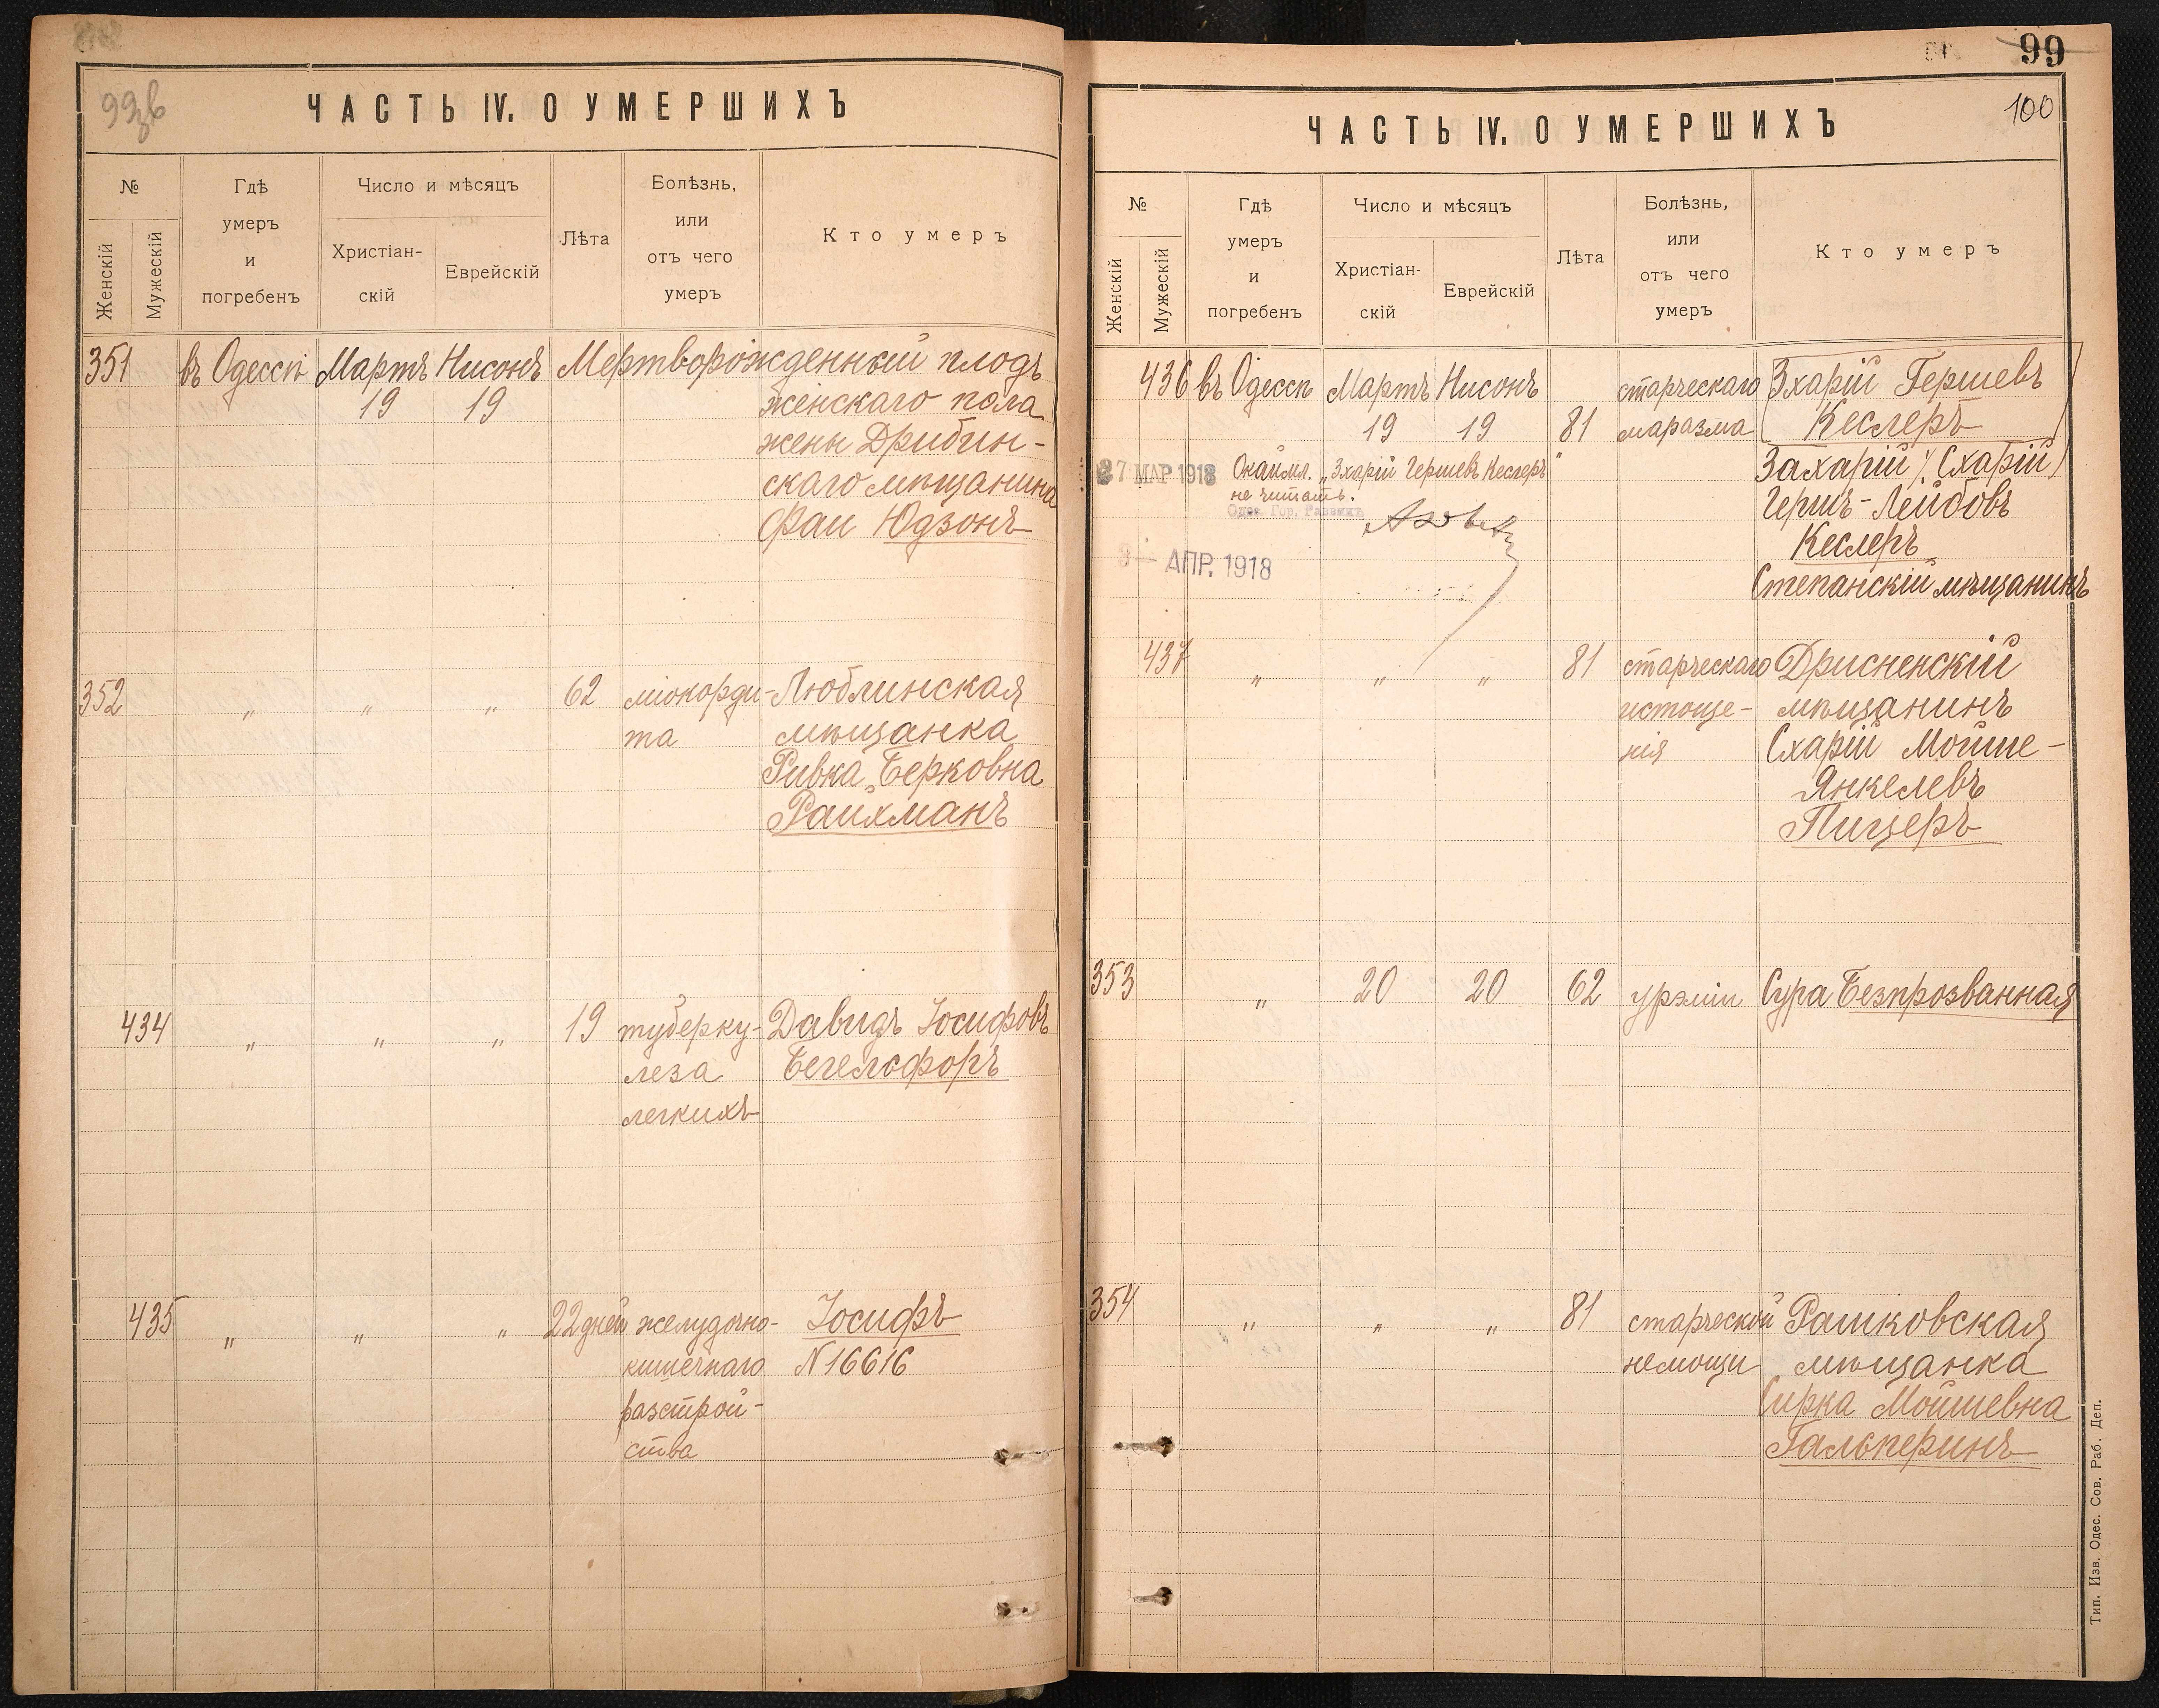 99зв
ЧАСТЬ IV. О УМЕРШИХЪ
№
Женскій
Мужескій
Гдѣ
умеръ
и
погребенъ
Число и мѣсяцъ
Христіан-
скій
Еврейскій
Лѣта
Болѣзнь,
или
отъ чего
умеръ
Кто умеръ
351 въ Одессѣ Мартъ Нисонъ Мертворожденный плодъ
19 19 женскаго пола
жены Дрибин-
скаго мѣщанина
Фаи Юдзонъ
352 „ „ „ 62 міокорди- Люблинская
та мѣщанка
Ривка Берковна
Райхманъ
434 „ „ „ 19 туберку- Давидъ Іосифовъ
леза Бегельфоръ
легкихъ
435 „ „ „ 22 дней желудочно- Іосифъ
кишечнаго N 16616
разстрой-
ства
99
100
ЧАСТЬ IV. О УМЕРШИХЪ
№
Женскій
Мужескій
Гдѣ
умеръ
и
погребенъ
Число и мѣсяцъ
Христіан-
скій
Еврейскій
Лѣта
Болѣзнь,
или
отъ чего
умеръ
Кто умеръ
436 въ Одессѣ Мартъ Нисонъ старческаго Зхарій Гершевъ
19 19 81 маразма Кеслеръ
27 МАР 1918 Окаймл. „Зхарій Гершевъ Кеслеръ" Захарій (Схарій)
не читать. Гершъ-Лейбовъ
Одес. Гор. Раввинъ
Кеслеръ
АПР. 1918
Степанскій мѣщанинъ
437 „ „ „ 81 старческаго Дрисненскій
истоще- мѣщанинъ
нія Схарій Мойше-
Янкелевъ
Пицеръ
353 „ 20 20 62 урэміи Сура Безпрозванная
354 „ „ „ 81 старческой Рашковская
немощи мѣщанка
Сирка Мойшевна
Гальперинъ
Тип. Изв. Одес. Сов. Раб. Деп.